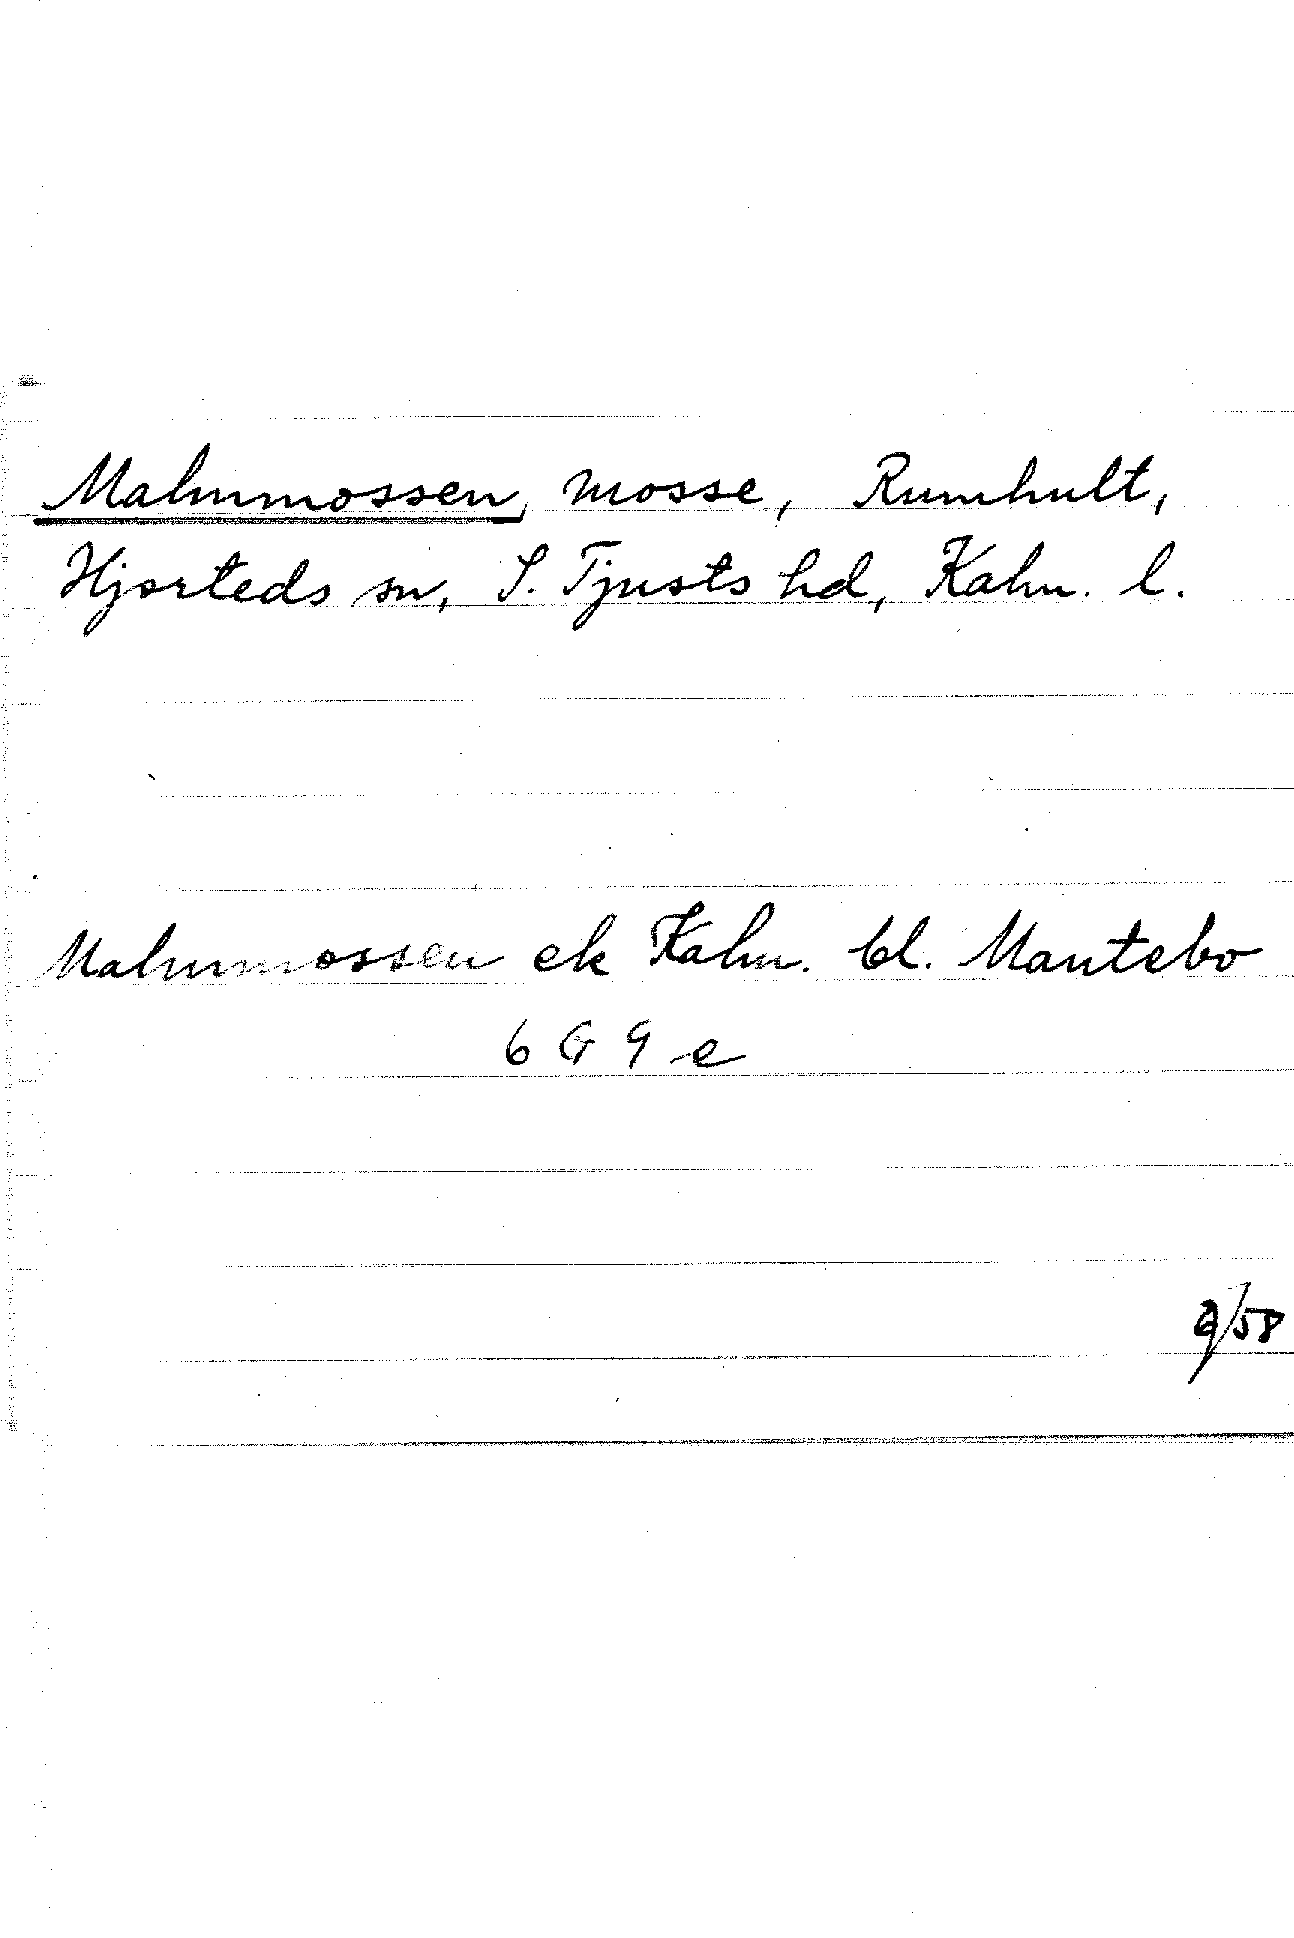 Malmmossen, mosse, Rumhult,
Hjorteds sn, S. Tjusts hd, Kalm. l.
Malmmossen ek Kalm. bl. Mantebo
6 G 9 e
/58